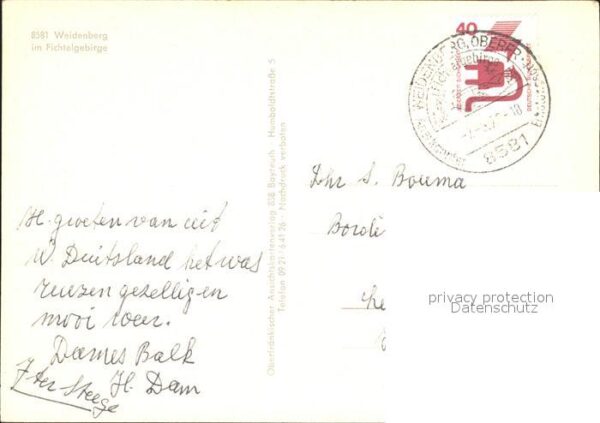 8581 Weidenberg
im Fichtelgebirge
40
WEIDENBERG, OBERFR.
8581
Oberfränkischer Ansichtskartenverlag 858 Bayreuth · Humboldtstraße 5
Telefon 0921-64126 · Nachdruck verboten
Dhr S. Bouma
H. groeten van uit
W. Duitsland het was
reuzen gezellig en
mooi weer.
Dames Balk
H. Dam
J ter Steege
privacy protection
Datenschutz